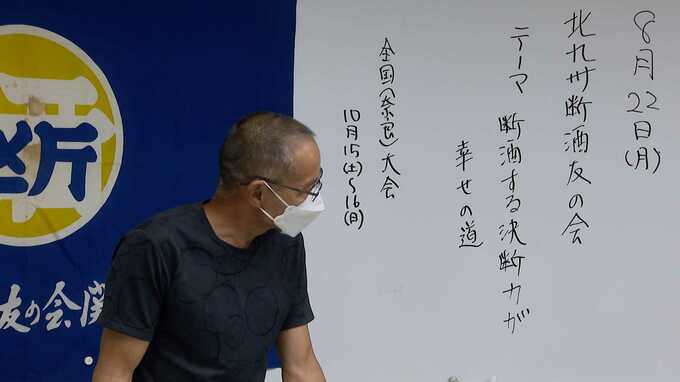 8月22日(月)
北九州断酒友の会
テーマ 断酒する決断力が
幸せの道
全国(奈良)大会
10月15(土)~16(日)
断
友の会